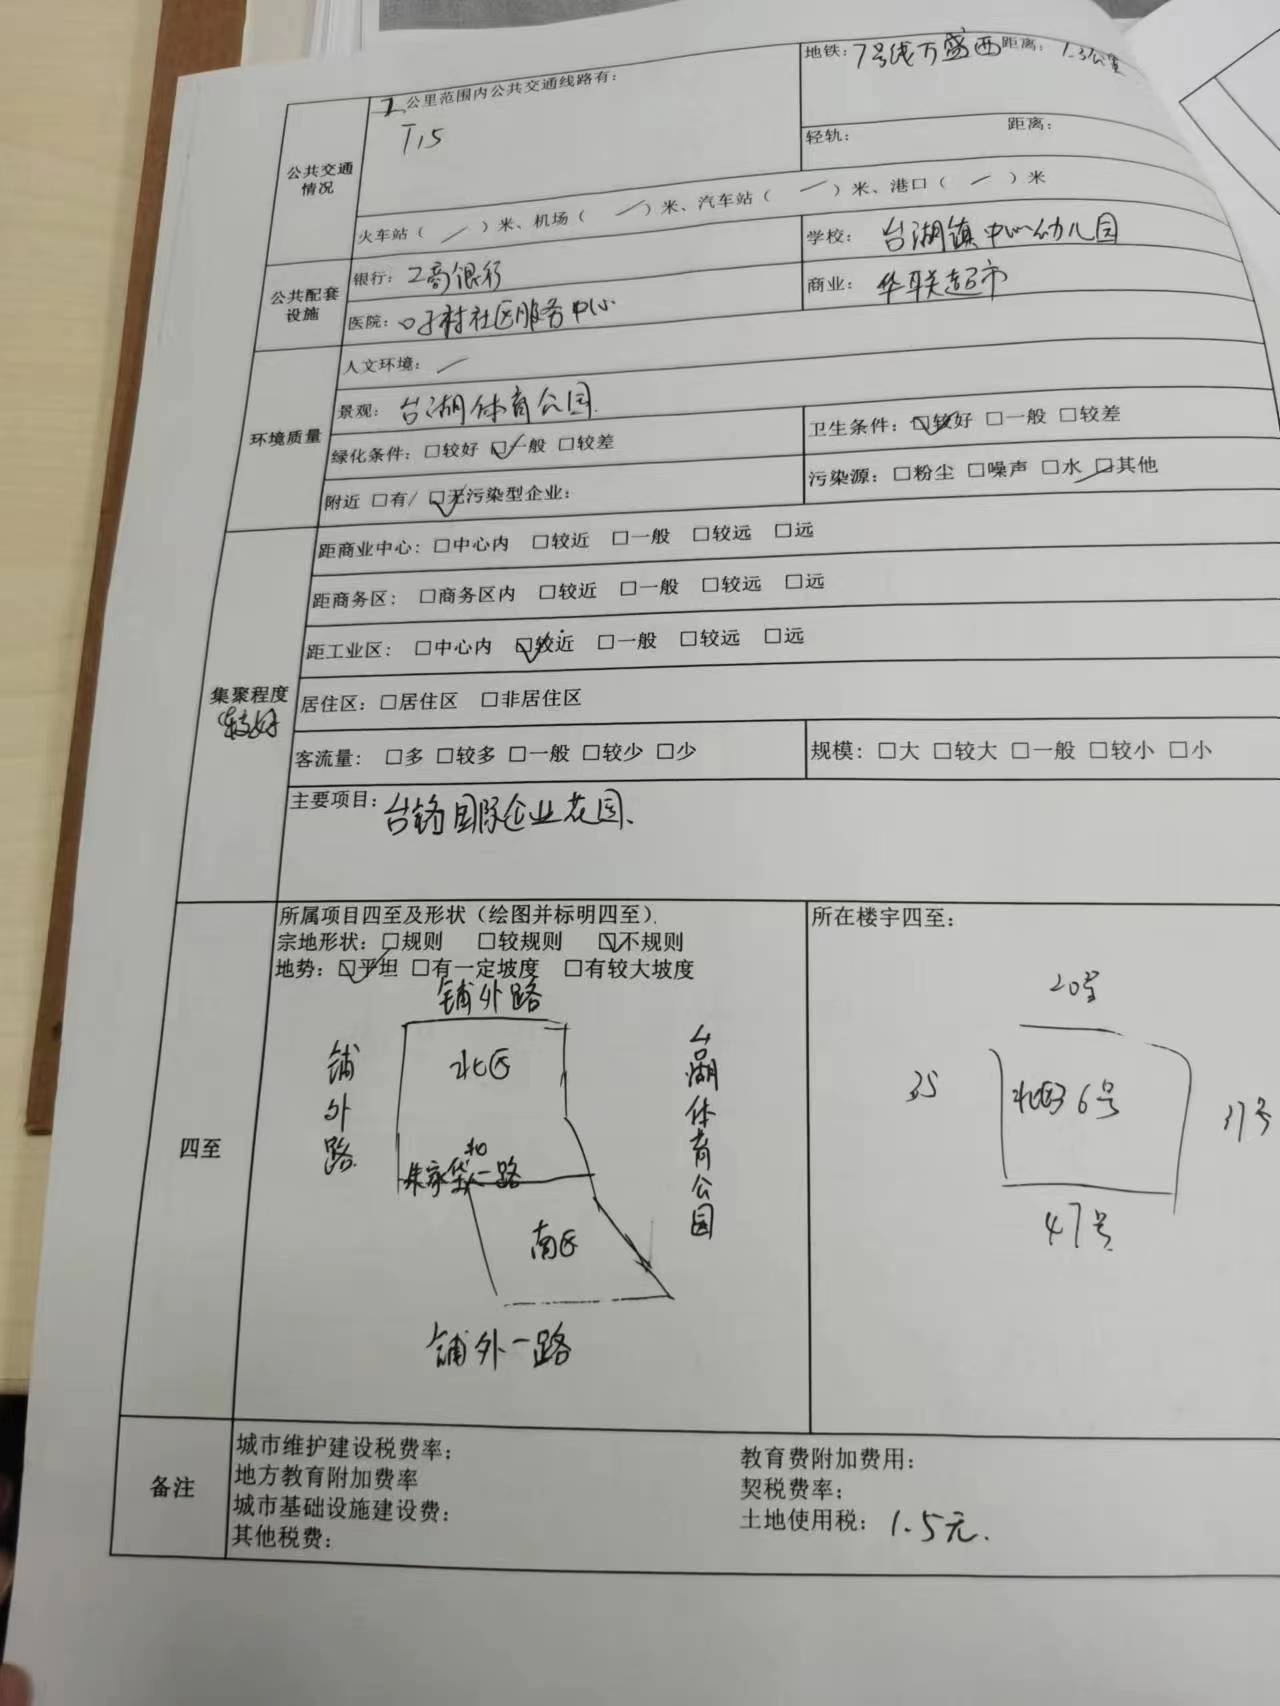 公里范围内公共交通线路有：
T15
地铁：7号线万盛西 距离：1.3公里
公共交通情况
轻轨： 距离：
火车站（ ）米、机场（ ）米、汽车站（ ）米、港口（ ）米
公共配套设施
银行：工商银行
学校：台湖镇中心幼儿园
医院：口子村社区服务中心
商业：华联超市
环境质量
人文环境：
景观：台湖体育公园
绿化条件：□较好 ☑一般 □较差
卫生条件：☑较好 □一般 □较差
附近 □有/ ☑无污染型企业：
污染源：□粉尘 □噪声 □水 □其他
集聚程度
较好
距商业中心：□中心内 □较近 □一般 □较远 □远
距商务区：□商务区内 □较近 □一般 □较远 □远
距工业区：□中心内 ☑较近 □一般 □较远 □远
居住区：□居住区 □非居住区
客流量：□多 □较多 □一般 □较少 □少
规模：□大 □较大 □一般 □较小 □小
主要项目：台 国际企业花园
四至
所属项目四至及形状（绘图并标明四至）
宗地形状：□规则 □较规则 ☑不规则
地势：☑平坦 □有一定坡度 □有较大坡度
铺外路
北区
铺外路
台湖体育公园
一路
南区
铺外一路
所在楼宇四至：
20号
35
36号
37号
47号
备注
城市维护建设税费率：
教育费附加费用：
地方教育附加费率
契税费率：
城市基础设施建设费：
土地使用税：1.5元.
其他税费：